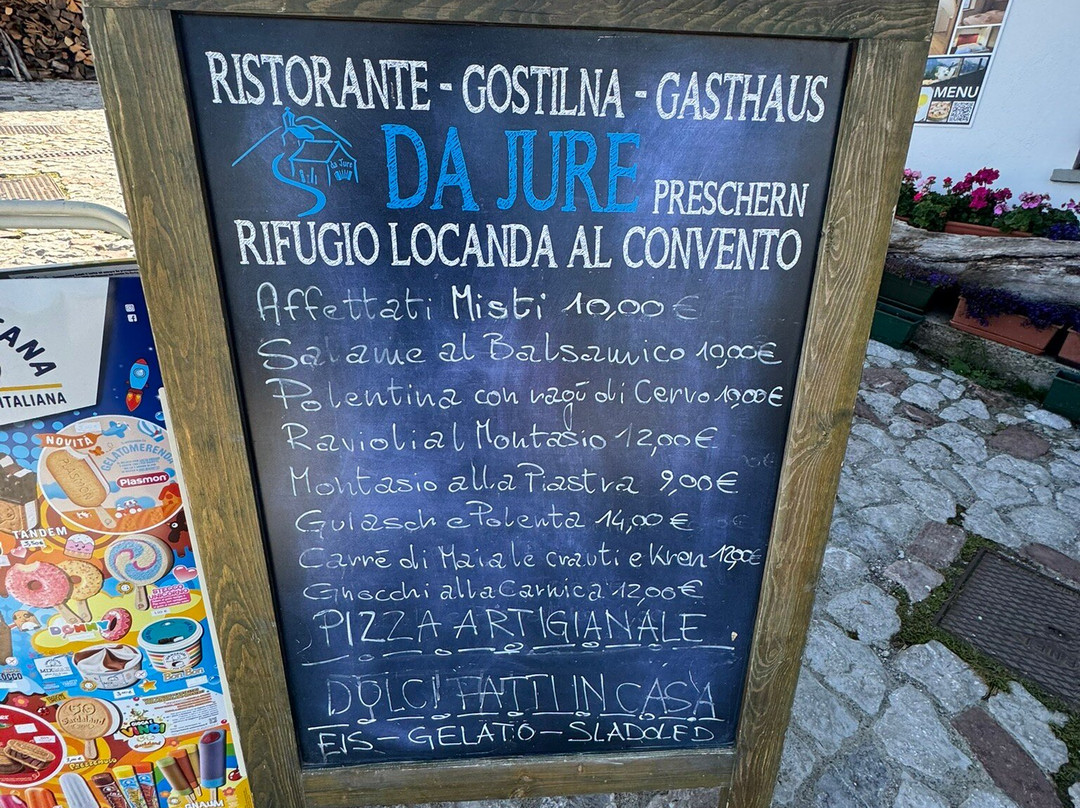 RISTORANTE - GOSTILNA - GASTHAUS
da Jure
DA JURE PRESCHERN
RIFUGIO LOCANDA AL CONVENTO
Affettati Misti 10,00 €
Salame al Balsamico 10,00€
Polentina con ragù di Cervo 10,00€
Ravioli al Montasio 12,00€
Montasio alla Piastra 9,00€
Gulasch e Polenta 14,00 €
Carrè di Maiale crauti e Kren 12,00€
Gnocchi alla Carnica 12,00€
PIZZA ARTIGIANALE
DOLCI FATTI IN CASA
EIS - GELATO - SLADOLED
MENU
ITALIANA
NOVITÀ
GELATOMERENDA
Plasmon
TANDEM
DONNY
BonBon